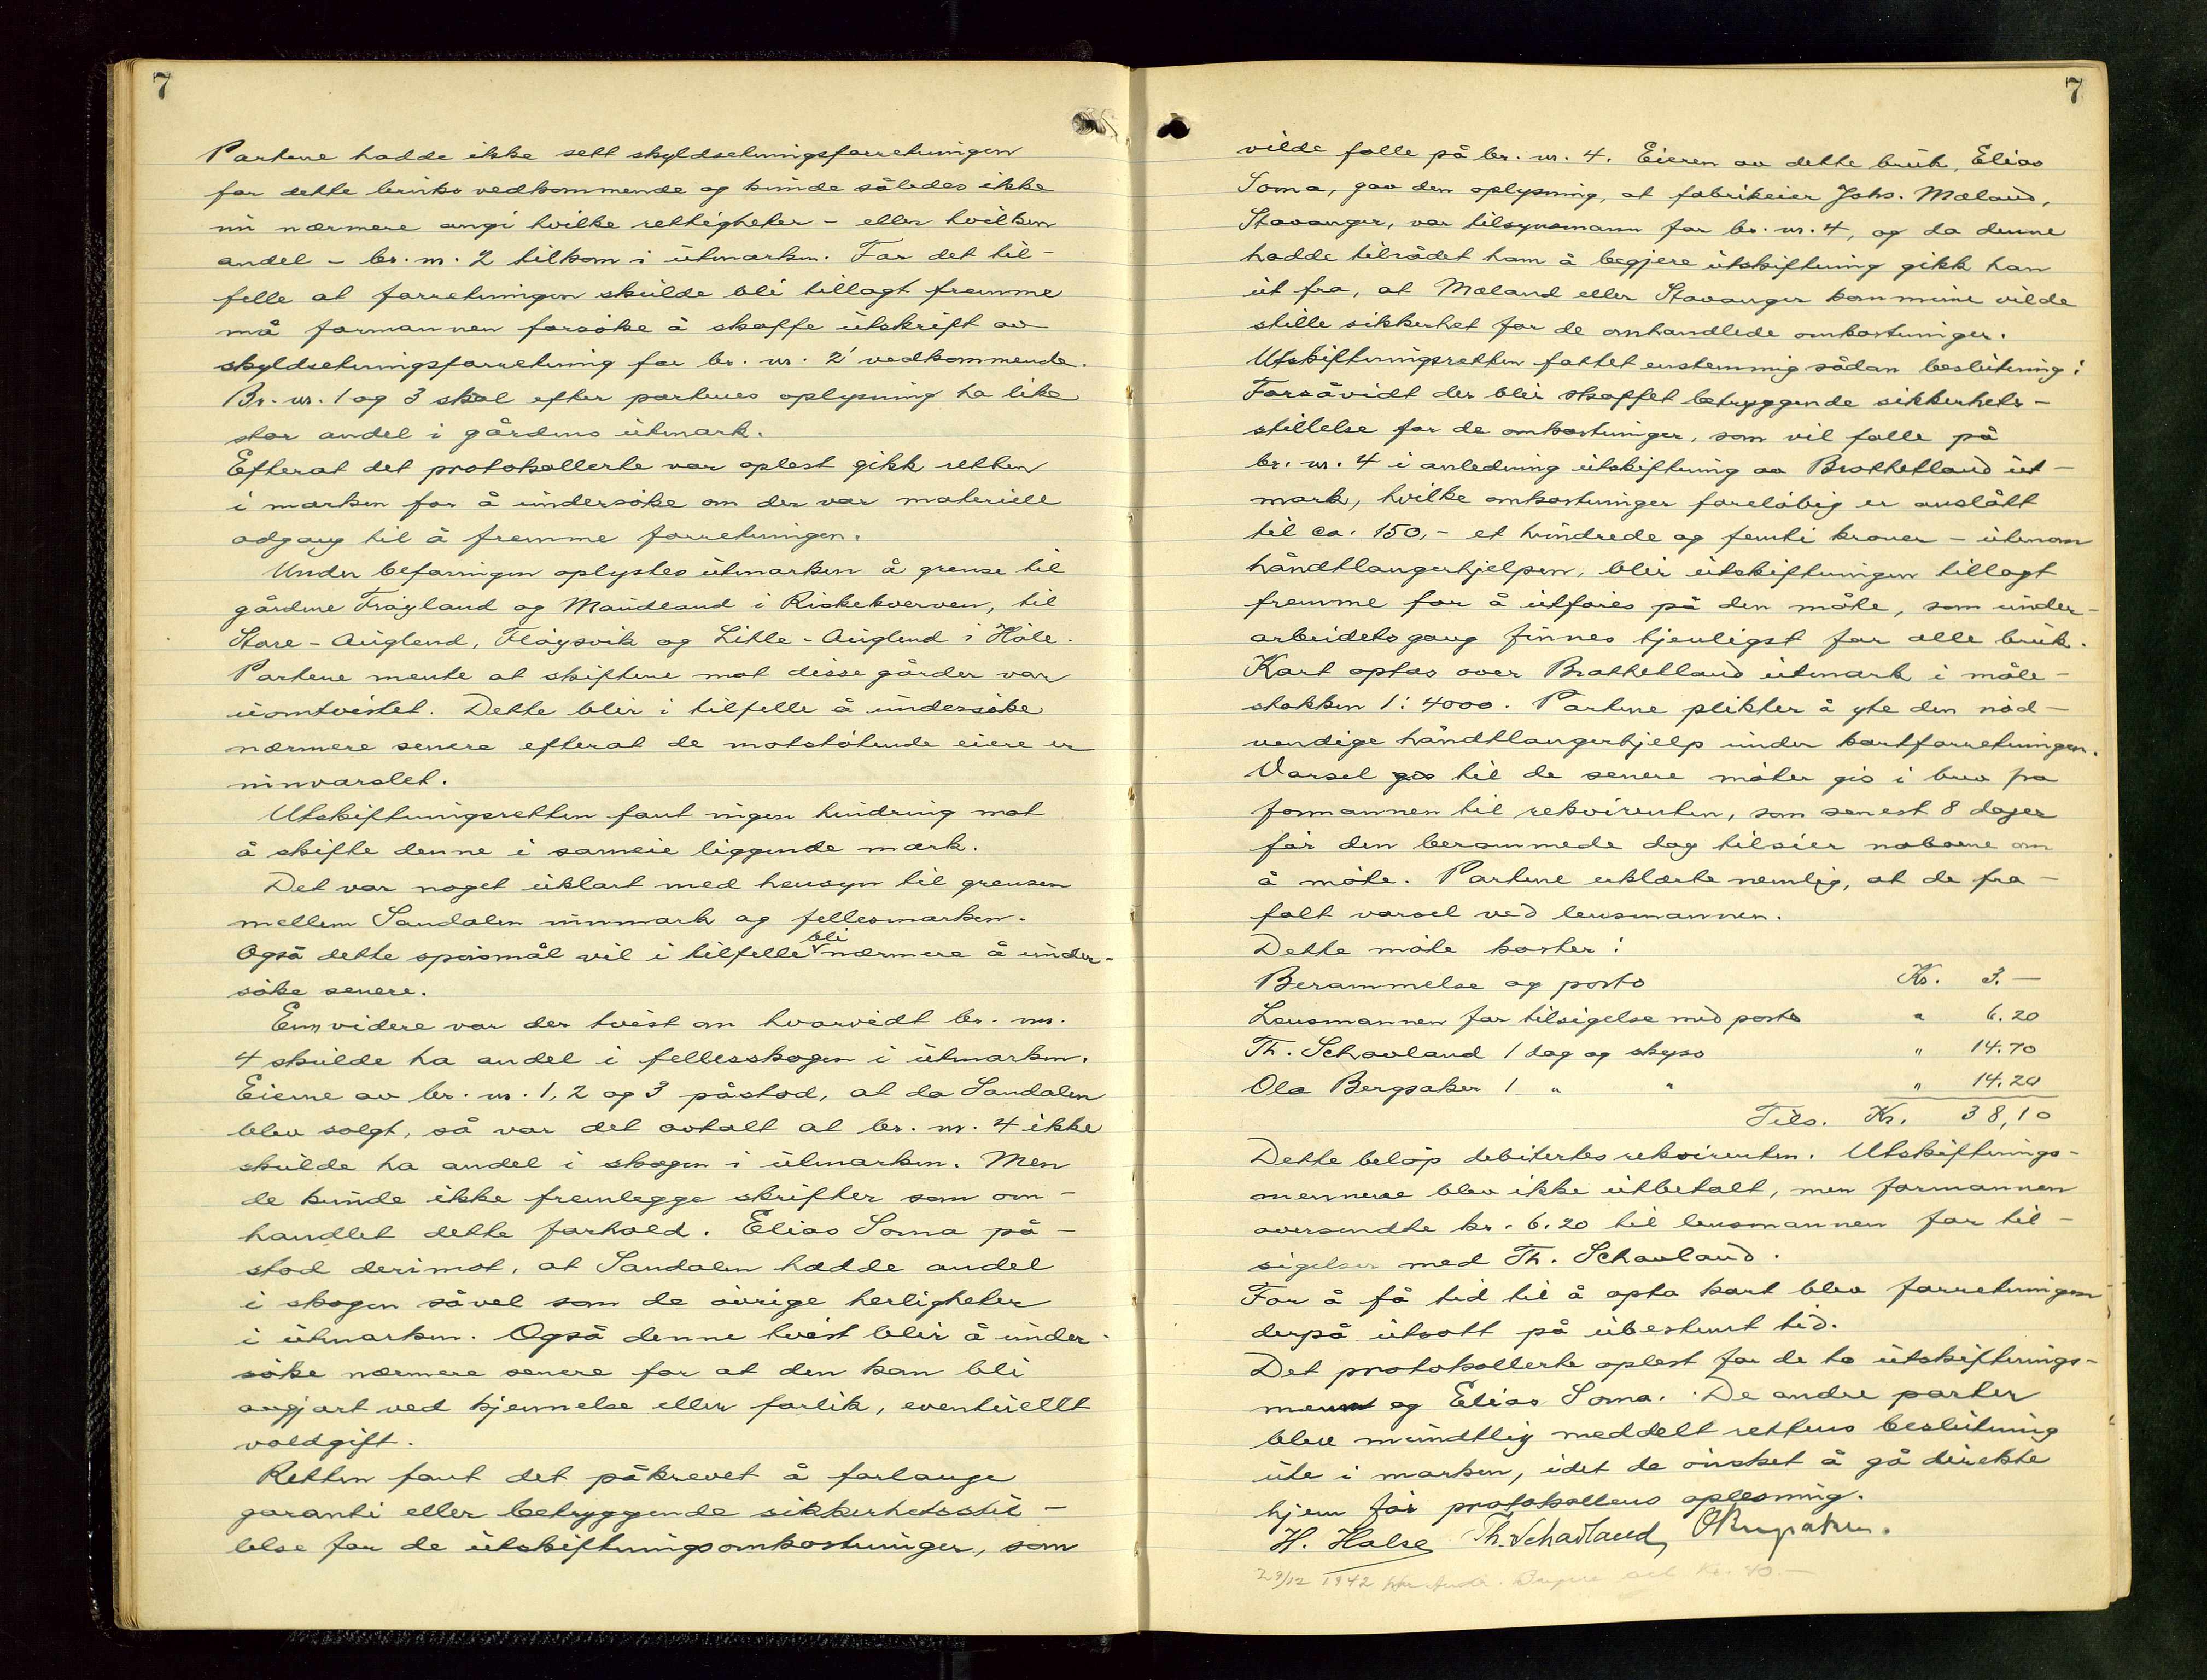 7
Partene hadde ikke sett skyldsetningsforretningen
for dette bruks vedkommende og kunde således ikke
nu nærmere angi hvilke rettigheter - eller hvilken
andel - br. nr. 2 tilkom i utmarken. For det til-
felle at forretningen skulde bli tillagt fremme
må formannen forsøke å skaffe utskrift av
skyldsetningsforretning for br. nr. 2's vedkommende.
Br. nr. 1 og 3 skal efter partenes oplysning ha like
stor andel i gårdens utmark.
Efterat det protokollerte var oplest gikk retten
i marken for å undersøke om der var materiell
adgang til å fremme forretningen.
Under befaringen oplystes utmarken å grense til
gårdene Frøyland og Maudland i Riskekverven, til
Store-Auglend, Fløysvik og Litle-Auglend i Høle.
Partene mente at skiftene mot disse gårder var
uomtvistet. Dette blir i tilfelle å undersøke
nærmere senere efterat de motstøtende eiere er
innvarslet.
Utskiftningsretten fant ingen hindring mot
å skifte denne i sameie liggende mark.
Det var noget uklart med hensyn til grensen
mellem Sandalen innmark og fellesmarken.
Også dette spørsmål vil i tilfelle bli nærmere å under-
søke senere.
Enn videre var der tvist om hvorvidt br. nr.
4 skulde ha andel i fellesskogen i utmarken.
Eierne av br. nr. 1, 2 og 3 påstod, at da Sandalen
blev solgt, så var det avtalt at br. nr. 4 ikke
skulde ha andel i skogen i utmarken. Men
de kunde ikke fremlegge skrifter som om-
handlet dette forhold. Elias Soma på-
stod derimot, at Sandalen hadde andel
i skogen såvel som de øvrige herligheter
i utmarken. Også denne tvist blir å under-
søke nærmere senere for at den kan bli
avgjort ved kjennelse eller forlik, eventuellt
voldgift.
Retten fant det påkrevet å forlange
garanti eller betryggende sikkerhetsstil-
lelse for de utskiftningsomkostninger, som
7
vilde falle på br. nr. 4. Eieren av dette bruk, Elias
Soma, gav den oplysning, at fabrikeier Johs. Mæland,
Stavanger, var tilsynsmann for br. nr. 4, og da denne
hadde tilrådet ham å begjere utskiftning gikk han
ut fra, at Mæland eller Stavanger kommune vilde
stille sikkerhet for de omhandlede omkostninger.
Utskiftningsretten fattet enstemmig sådan beslutning:
Forsåvidt der blir skaffet betryggende sikkerhets-
stillelse for de omkostninger, som vil falle på
br. nr. 4 i anledning utskiftning av Brattetland ut-
mark, hvilke omkostninger foreløbig er anslått
til ca. 150,- et hundrede og femti kroner - utenom
håndtlangerhjelpen, blir utskiftningen tillagt
fremme for å utføres på den måte, som under-
arbeidets gang finnes tjenligst for alle bruk.
Kart optas over Brattetland utmark i måle-
stokken 1:4000. Partene plikter å yte den nød-
vendige håndtlangerhjelp under kartforretningen.
Varsel gis til de senere møter gis i brev fra
formannen til rekvirenten, som senest 8 dager
før den berammede dag tilsier naboene om
å møte. Partene erklærte nemlig, at de fra-
falt varsel ved lensmannen.
Dette møte koster:
Berammelse og porto Kr. 3.-
Lensmannen for tilsigelse med porto " 6.20
Th. Schavland 1 dag og skyss " 14.70
Ola Bergsaker 1 " " " 14.20
Tils. Kr. 38,10
Dette beløp debitertes rekvirenten. Utskiftnings-
mennene blev ikke utbetalt, men formannen
oversendte kr. 6.20 til lensmannen for til-
sigelser med Th. Schavland.
For å få tid til å opta kart blev forretningen
derpå utsatt på ubestemt tid.
Det protokollerte oplest for de to utskiftnings-
menn og Elias Soma. De andre parter
blev mundtlig meddelt rettens beslutning
ute i marken, idet de ønsket å gå direkte
hjem før protokollens oplesning.
H. Halse Th. Schavland, OBergsaker.
29/12 1942 Kr. 40.-